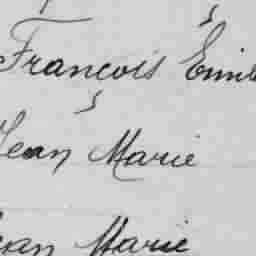 François Emile
Jean Marie
Jean Marie